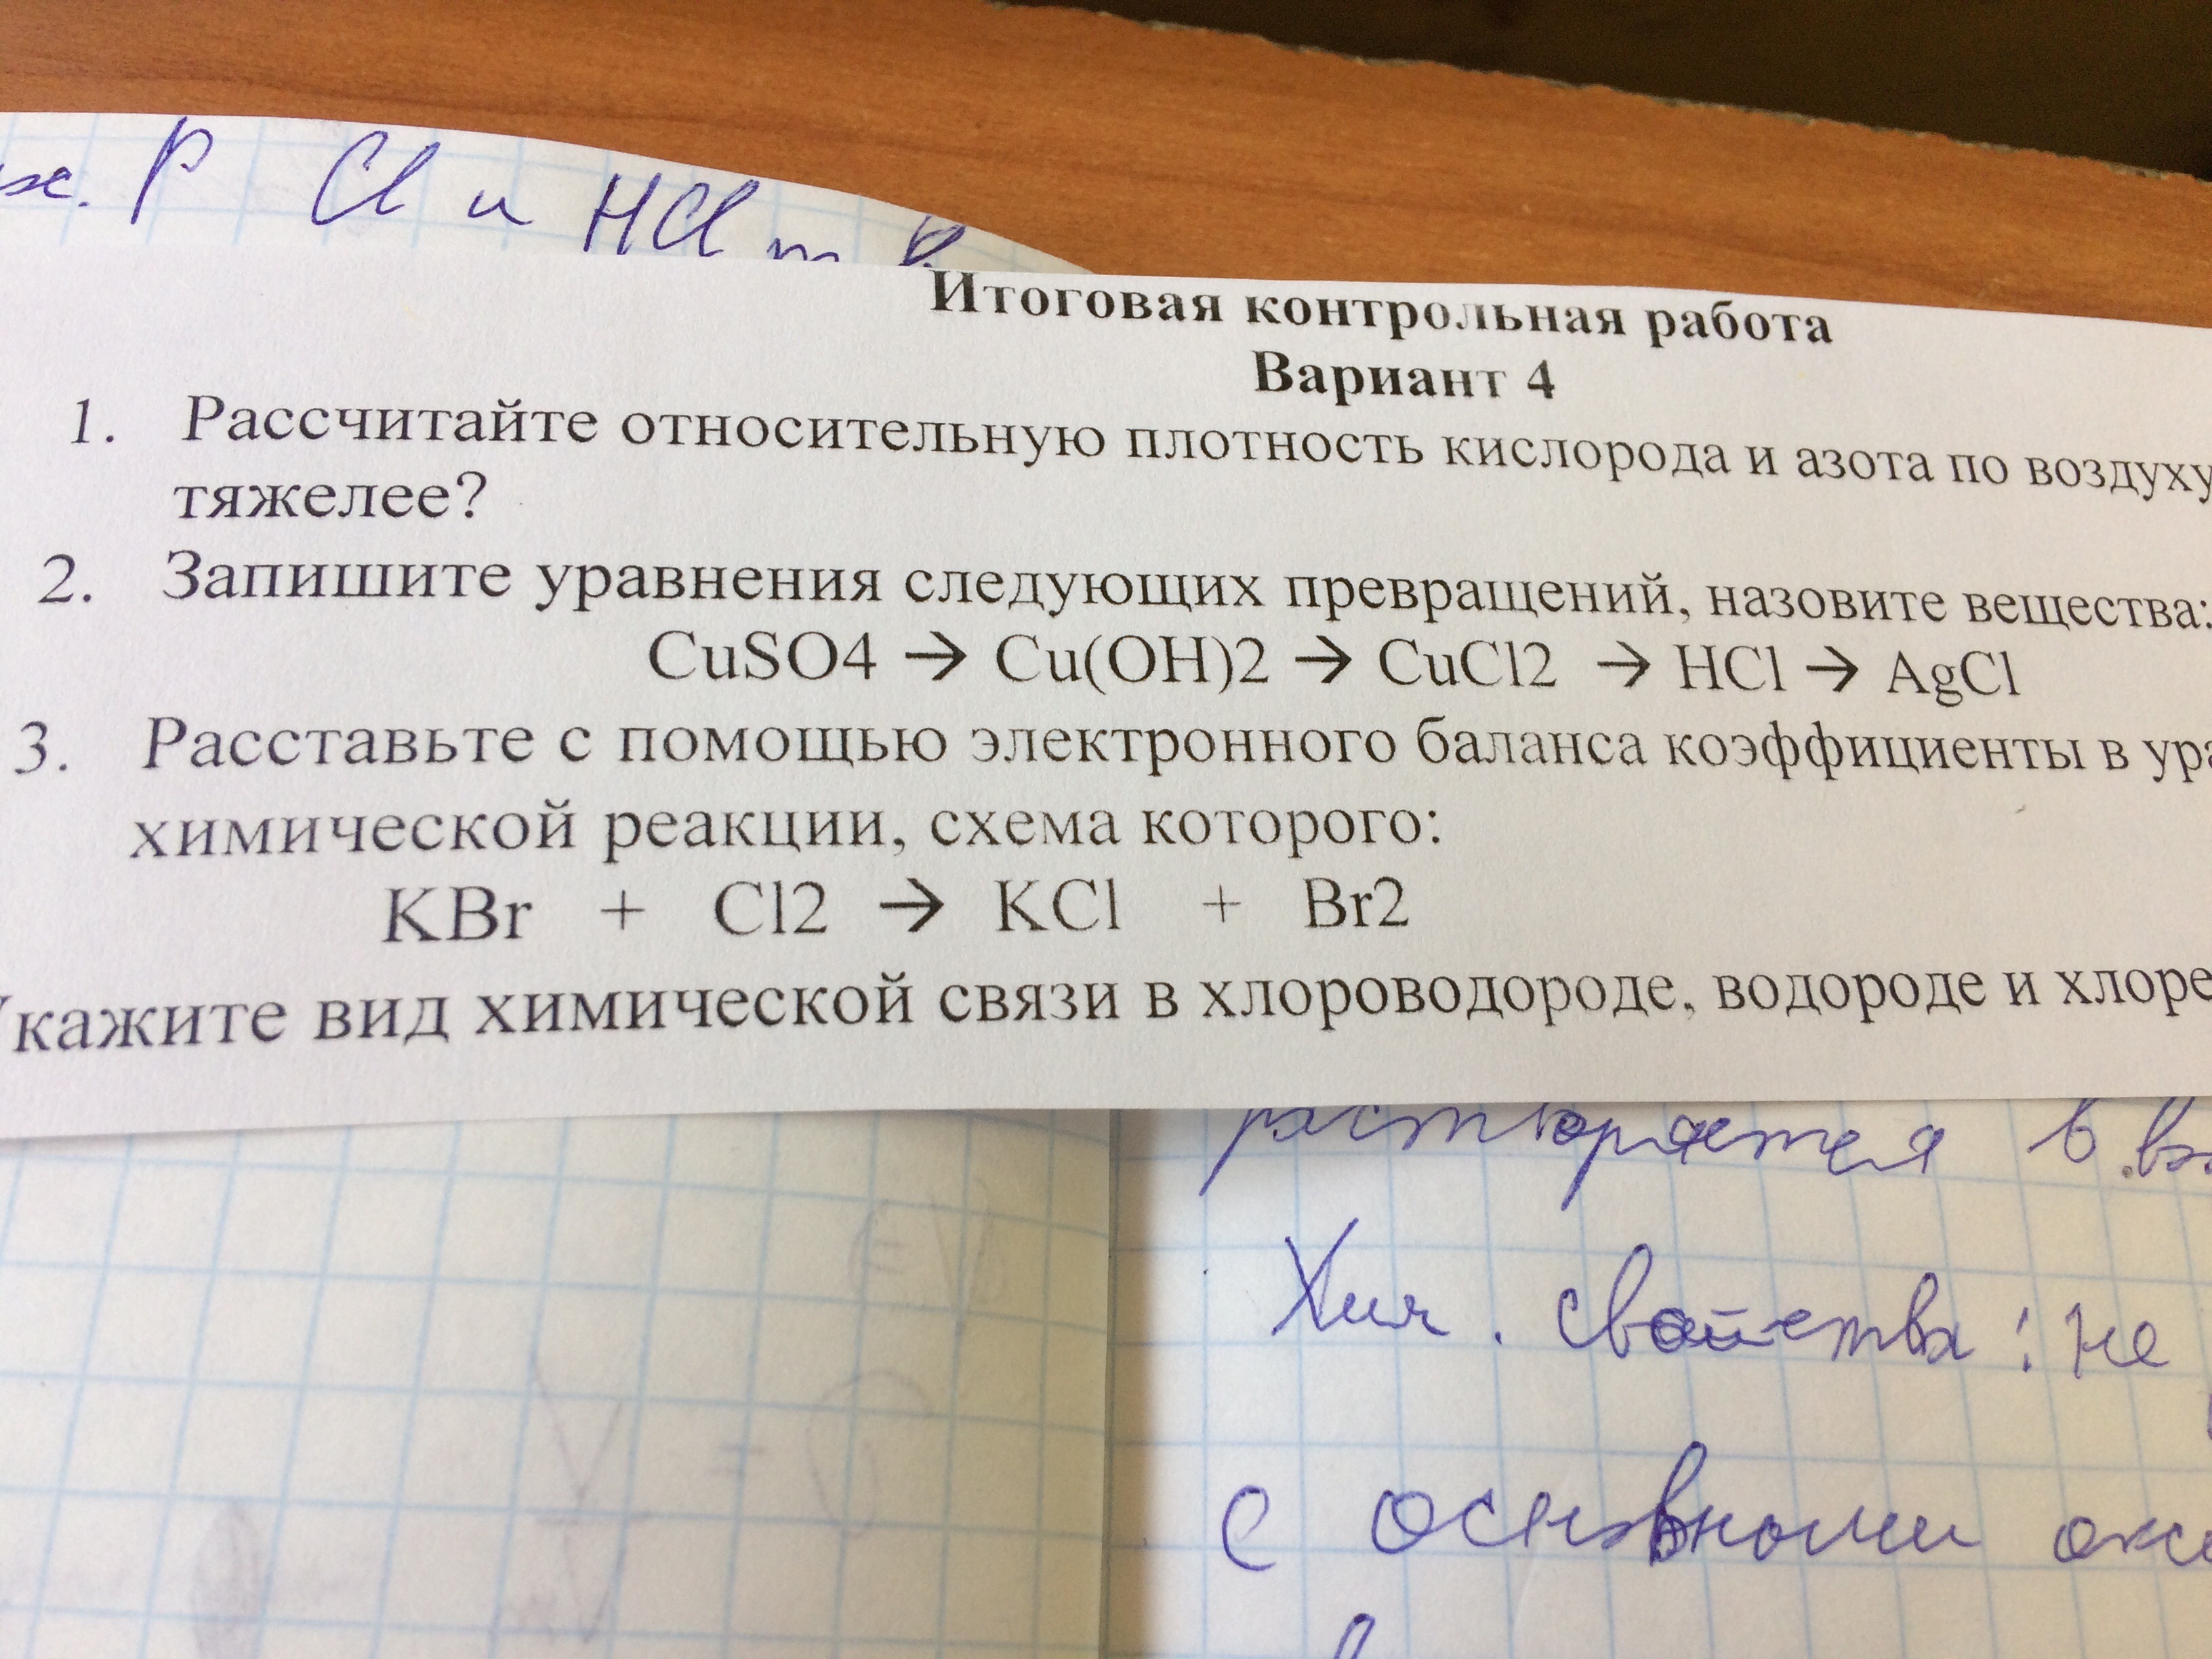 P Cl и HCl
Итоговая контрольная работа
Вариант 4
1. Рассчитайте относительную плотность кислорода и азота по воздуху
тяжелее?
2. Запишите уравнения следующих превращений, назовите вещества:
CuSO4 → Cu(OH)2 → CuCl2 → HCl → AgCl
3. Расставьте с помощью электронного баланса коэффициенты в ура
химической реакции, схема которого:
KBr + Cl2 → KCl + Br2
Укажите вид химической связи в хлороводороде, водороде и хлоре
растворяется в
Хим. свойства: не
с основными